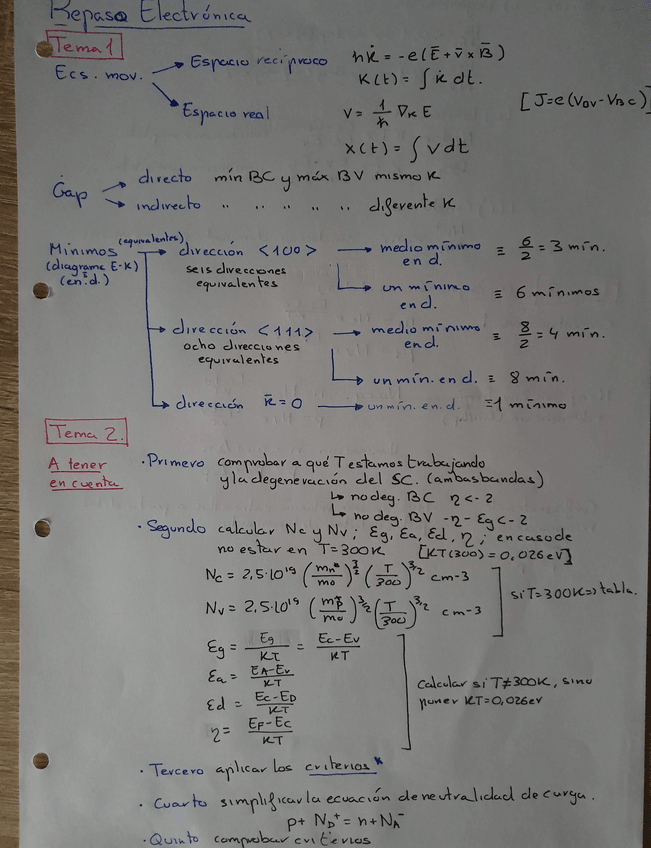 Repaso Electrónica
Tema 1
Ecs. mov. → Espacio recíproco ħk̇ = -e(Ē + v̄ × B̄)
K(t) = ∫ k̇ dt.
→ Espacio real v = 1/ħ ∇k E [J=e(VBV-VBC)]
x(t) = ∫ v dt
Gap → directo mín BC y máx BV mismo K
→ indirecto " " " " " diferente K
Mínimos (equivalentes) → dirección <100> → medio mínimo ≡ 6/2 = 3 mín.
(diagrama E-K) seis direcciones en d.
(en d.) equivalentes → un mínimo ≡ 6 mínimos
en d.
→ dirección <111> → medio mínimo ≡ 8/2 = 4 mín.
ocho direcciones en d.
equivalentes
→ un mín. en d. ≡ 8 mín.
→ dirección k̄ = 0 → un mín. en d. ≡ 1 mínimo
Tema 2.
A tener
en cuenta
· Primero comprobar a qué T estamos trabajando
y la degeneración del SC. (ambas bandas)
↳ no deg. BC η < -2
↳ no deg. BV -η - Eg < -2
· Segundo calcular Nc y Nv; Eg, Ea, Ed, η; en caso de
no estar en T=300K [KT(300) = 0,026eV]
Nc = 2,5·10¹⁹ (mn*/mo)^3/2 (T/300)^3/2 cm-3
Nv = 2,5·10¹⁹ (mp*/mo)^3/2 (T/300)^3/2 cm-3
si T=300K => tabla.
Ɛg = Eg/KT = Ec-Ev/KT
Ɛa = EA-Ev/KT
Ɛd = Ec-ED/KT
η = EF-Ec/KT
Calcular si T≠300K, sino
poner KT=0,026eV
· Tercero aplicar los criterios*
· Cuarto simplificar la ecuación de neutralidad de carga.
p + ND⁺ = n + NA⁻
· Quinto comprobar criterios